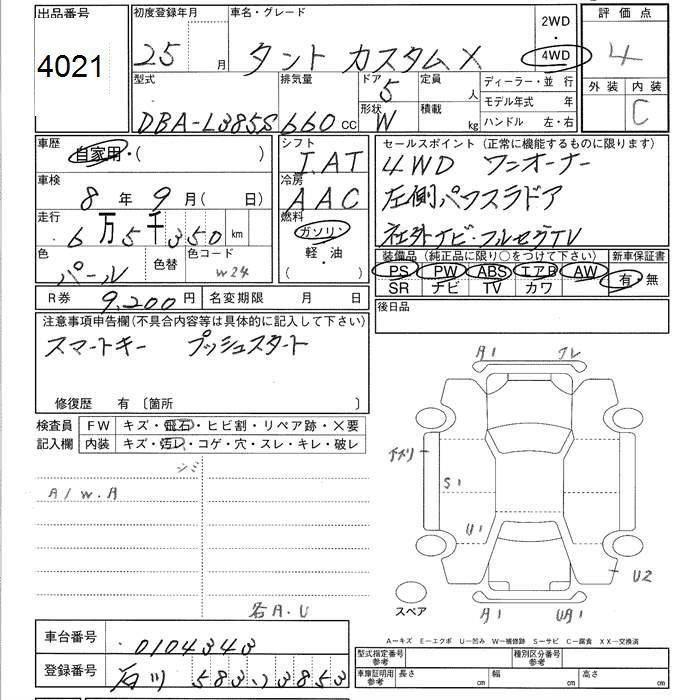 出品番号
4021
初度登録年月
25 月
車名・グレード
タント カスタム X
2WD
・
4WD
評価点
4
外装 内装
C
型式
DBA-L385S
排気量
660 cc
ドア
5
形状
W
定員 人
積載 kg
ディーラー・並行
モデル年式 年
ハンドル 左・右
車歴
自家用・( )
車検
8 年 9 月( 日)
走行
6万5千350 km
色
パール
色替
色コード
W24
シフト
I.AT
冷房
AAC
燃料
ガソリン
軽・油
( )
セールスポイント (正常に機能するものに限ります)
4WD ワンオーナー
左側パワスラドア
社外ナビ・フルセグTV
装備品 (純正品に限り○をつけて下さい)
PS PW ABS エアB AW
SR ナビ TV カワ
新車保証書
有・無
R券 9,200 円
名変期限 月 日
後日品
注意事項申告欄(不具合内容等は具体的に記入して下さい)
スマートキー プッシュスタート
修復歴 有 〔箇所 〕
検査員
記入欄
FW キズ・飛石・ヒビ割・リペア跡・×要
内装 キズ・汚レ・コゲ・穴・スレ・キレ・破レ
シミ
A/W.A
各A.U
A1
S1
U1
U2
A1
UA1
スペア
A−キズ E−エクボ U−凹み W−補修跡 S−サビ C−腐食 XX−交換済
車台番号 0104343
登録番号 石川 583 ﾉ 3853
型式指定番号
参考
種別区分番号
参考
車庫証明用
参考
長さ cm 幅 cm 高さ cm